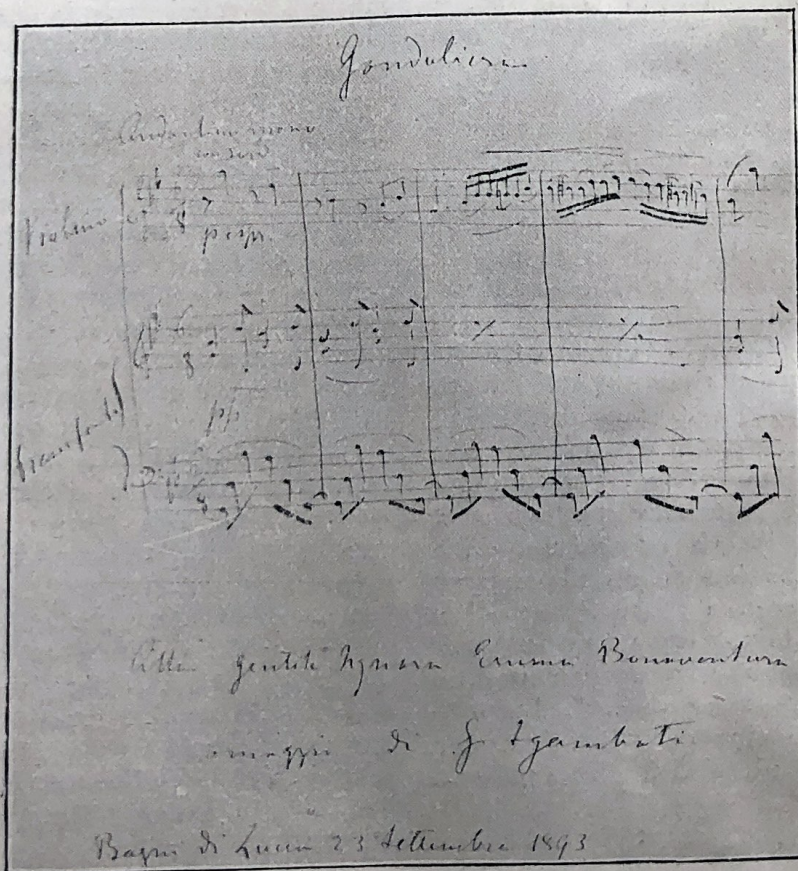 Gondoliera
Andantino mosso
con sord
Violino
p espr.
6
8
pp
Pianoforte
Alla gentile Signora Emma Bonaventura
omaggio di G Sgambati
Bagni di Lucca 23 Settembre 1893